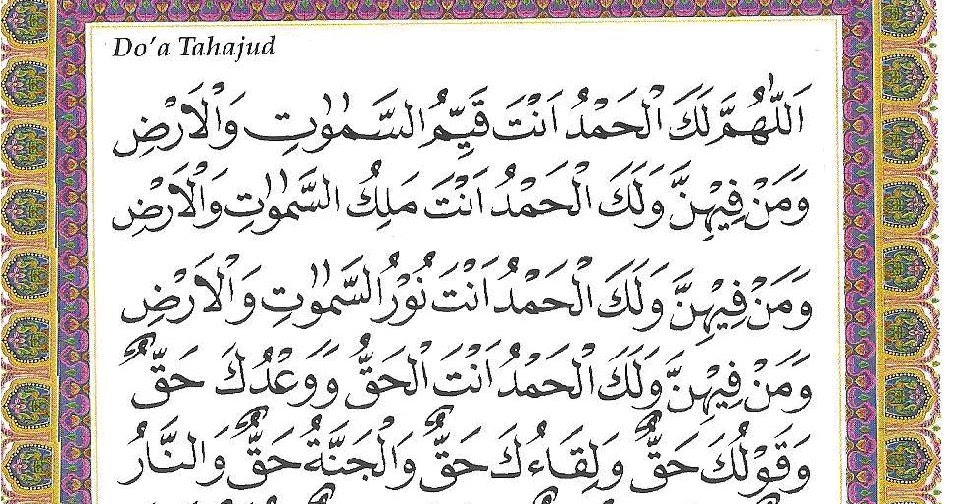 Do'a Tahajud
اَللّٰهُمَّ لَكَ الْحَمْدُ اَنْتَ قَيِّمُ السَّمٰوٰتِ وَالْاَرْضِ
وَمَنْ فِيْهِنَّ وَلَكَ الْحَمْدُ اَنْتَ مَلِكُ السَّمٰوٰتِ وَالْاَرْضِ
وَمَنْ فِيْهِنَّ وَلَكَ الْحَمْدُ اَنْتَ نُوْرُ السَّمٰوٰتِ وَالْاَرْضِ
وَمَنْ فِيْهِنَّ وَلَكَ الْحَمْدُ اَنْتَ الْحَقُّ وَوَعْدُكَ حَقٌّ
وَقَوْلُكَ حَقٌّ وَلِقَاءُكَ حَقٌّ وَالْجَنَّةُ حَقٌّ وَالنَّارُ